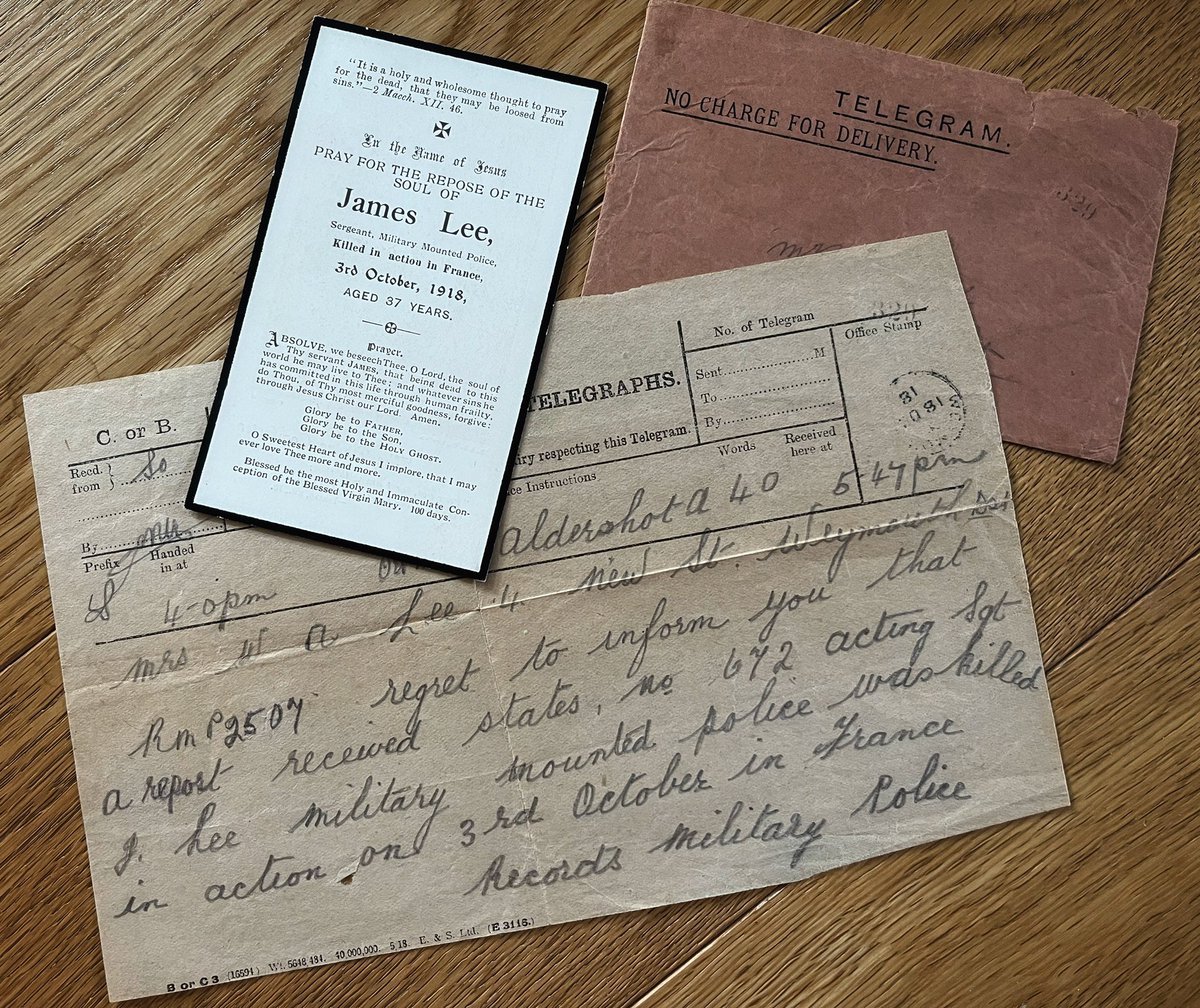 "It is a holy and wholesome thought to pray
for the dead, that they may be loosed from
sins."—2 Macch. XII. 46.
In the Name of Jesus
PRAY FOR THE REPOSE OF THE
SOUL OF
James Lee,
Sergeant, Military Mounted Police,
Killed in action in France,
3rd October, 1918,
AGED 37 YEARS.
Prayer.
ABSOLVE, we beseech Thee, O Lord, the soul of
Thy servant JAMES, that being dead to this
world he may live to Thee; and whatever sins he
has committed in this life through human frailty,
do Thou, of Thy most merciful goodness, forgive:
through Jesus Christ our Lord. Amen.
Glory be to FATHER,
Glory be to the SON,
Glory be to the HOLY GHOST.
O Sweetest Heart of Jesus I implore, that I may
ever love Thee more and more.
Blessed be the most Holy and Immaculate Con-
ception of the Blessed Virgin Mary. 100 days.
TELEGRAM.
NO CHARGE FOR DELIVERY.
329
Mrs
C. or B.
TELEGRAPHS.
No. of Telegram 329
Office Stamp
Recd. from } So
Sent M
To
By
iry respecting this Telegram.
By
Prefix
Handed
in at
ce Instructions
Words
Received
here at
S 4-0pm
Aldershot A 40 5-47pm
Mrs W A Lee 4 New St. Weymouth
RMP2507 regret to inform you that
a report received states, no 672 acting Sgt
J. Lee military mounted police was killed
in action on 3rd October in France
Records Military Police
B or C 3 (16594) Wt. 5648,484. 40,000,000. 5,18. E. & S. Ltd. (E 3116.)